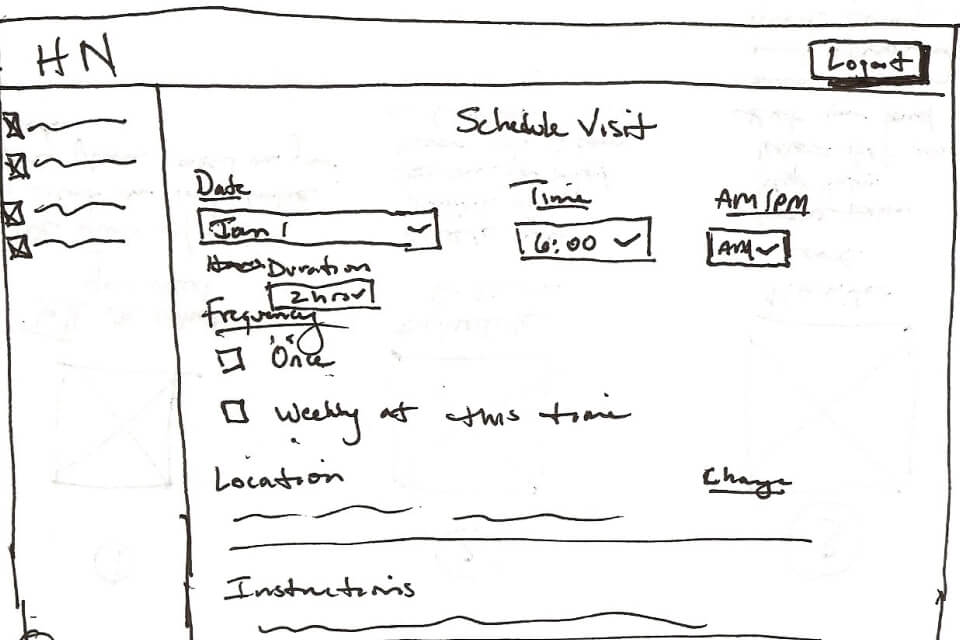 HN
Logout
Schedule Visit
Date Time AM/PM
Jan 1 6:00 AM
Duration
2 hrs
Frequency
Once
Weekly at this time
Location Change
Instructions